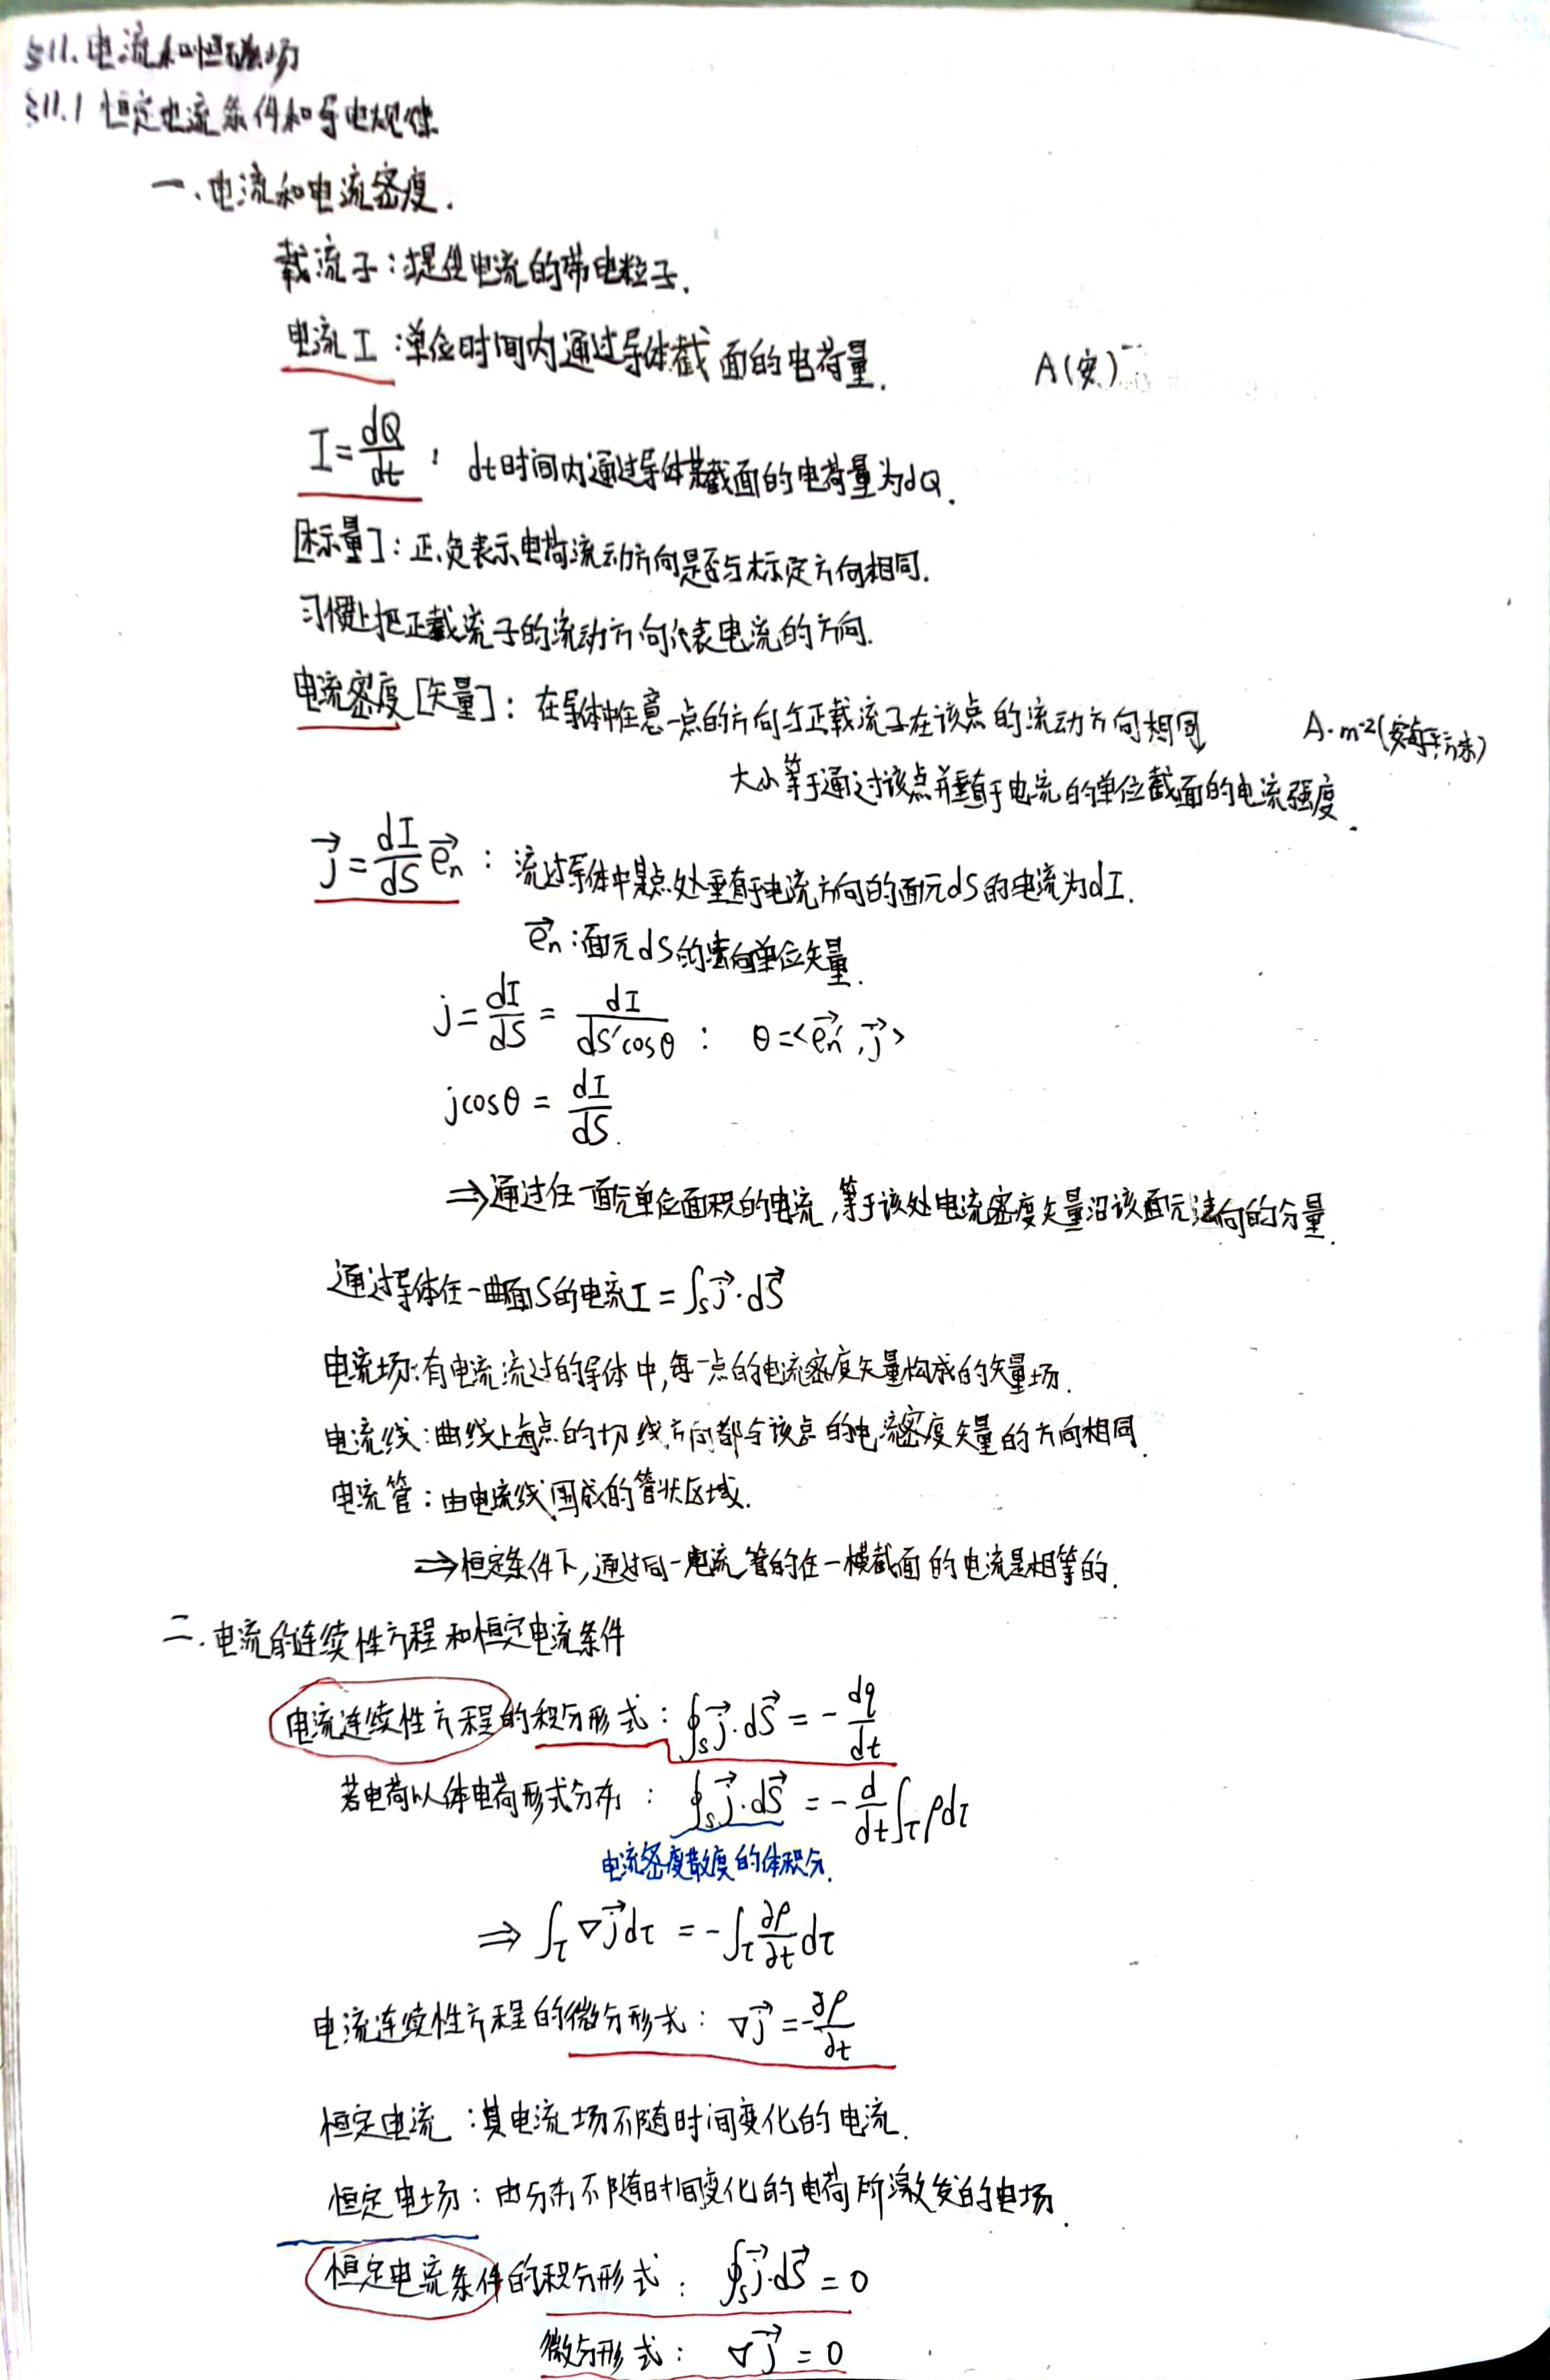 §11. 电流和恒磁场
§11.1 恒定电流条件和导电规律
一、电流和电流密度.
载流子:提供电流的带电粒子.
电流I:单位时间内通过导体截面的电荷量. A(安)
I=dQ/dt : dt时间内通过导体某截面的电荷量为dQ.
[标量]:正、负表示电荷流动方向是否与标定方向相同.
习惯上把正载流子的流动方向代表电流的方向.
电流密度[矢量]:在导体中任意一点的方向与正载流子在该点的流动方向相同, A·m⁻²(安每平方米)
大小等于通过该点并垂直于电流的单位截面的电流强度.
j⃗=dI/dS e⃗n : 流过导体中某点处垂直于电流方向的面元dS的电流为dI.
e⃗n:面元dS的法向单位矢量.
j=dI/dS=dI/dS'cosθ : θ=<e⃗n', j⃗>
jcosθ=dI/dS.
⇒通过任一面元单位面积的电流,等于该处电流密度矢量沿该面元法向的分量.
通过导体任一曲面S的电流I=∫s j⃗·dS⃗
电流场:有电流流过的导体中,每一点的电流密度矢量构成的矢量场.
电流线:曲线上每点的切线方向都与该点的电流密度矢量的方向相同.
电流管:由电流线围成的管状区域.
⇒恒定条件下,通过同一电流管的任一横截面的电流是相等的.
二.电流的连续性方程和恒定电流条件
电流连续性方程的积分形式:∮s j⃗·dS⃗=-dq/dt
若电荷以体电荷形式分布:∮s j⃗·dS⃗=-d/dt∫τ ρdτ
电流密度散度的体积分.
⇒∫τ ∇j⃗dτ=-∫τ ∂ρ/∂t dτ
电流连续性方程的微分形式:∇j⃗=-∂ρ/∂t
恒定电流:其电流场不随时间变化的电流.
恒定电场:由分布不随时间变化的电荷所激发的电场.
恒定电流条件的积分形式:∮s j⃗·dS⃗=0
微分形式:∇j⃗=0